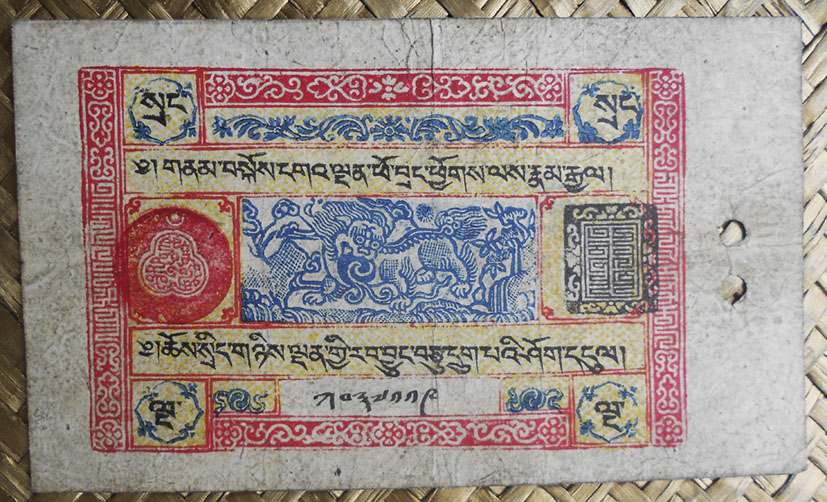 སྲང སྲང
༄༅། གནམ་བསྐོས་དགའ་ལྡན་ཕོ་བྲང་ཕྱོགས་ལས་རྣམ་རྒྱལ།
༄༅། ཆོས་སྲིད་གཉིས་ལྡན་གྱི་རབ་བྱུང་བཅུ་དྲུག་པའི་ཤོག་དངུལ།
ལྔ ལྔ